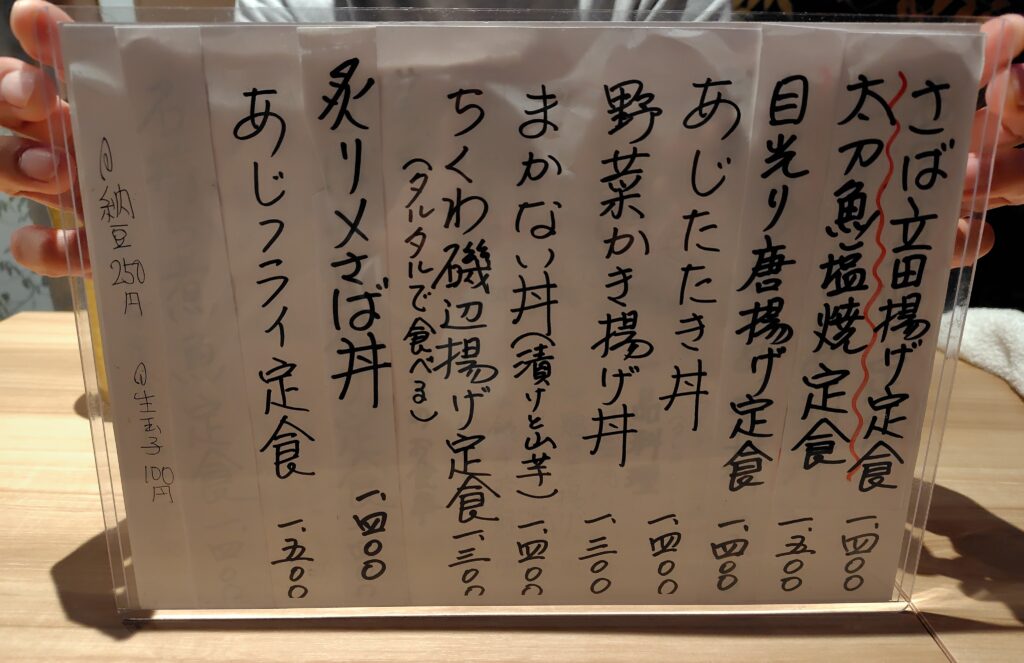 さば立田揚げ定食 一、四〇〇
太刀魚塩焼定食 一、五〇〇
目光り唐揚げ定食 一、四〇〇
あじたたき丼 一、四〇〇
野菜かき揚げ丼 一、三〇〇
まかない丼(漬けと山芋) 一、四〇〇
ちくわ磯辺揚げ定食 一、三〇〇
(タルタルで食べる)
炙り〆さば丼 一、四〇〇
あじフライ定食 一、五〇〇
納豆 250円
生玉子 100円